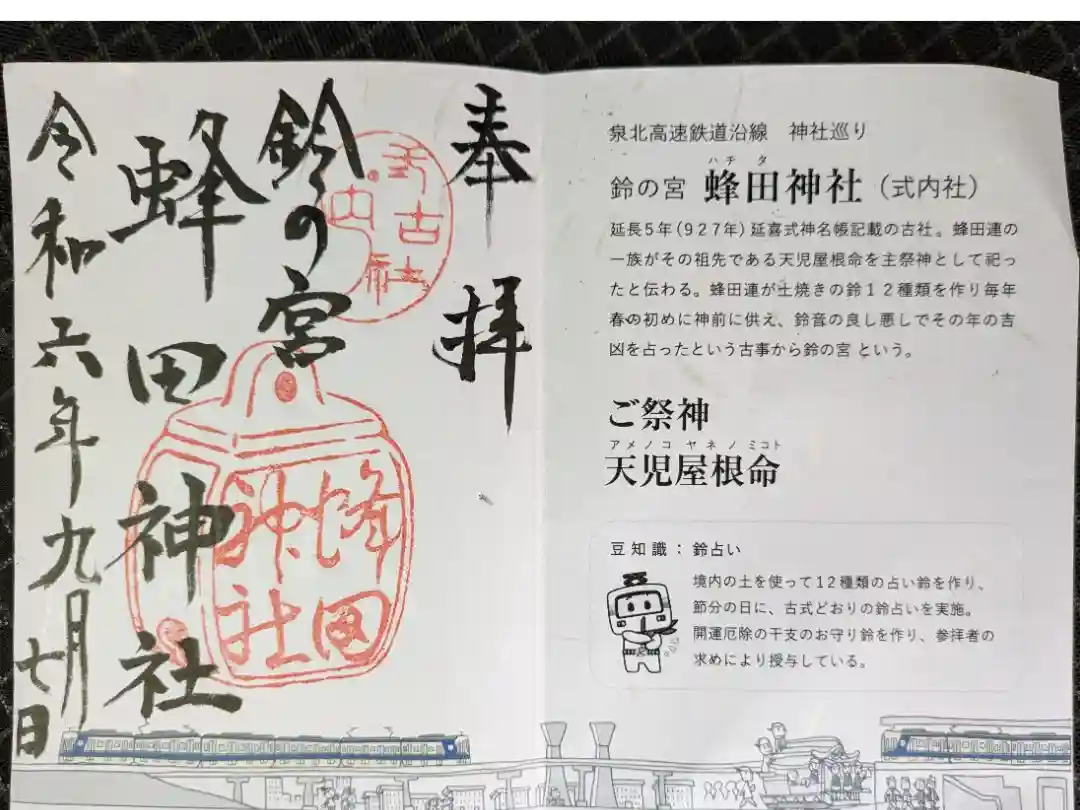 奉拝
鈴の宮
蜂田神社
令和六年九月七日
式内古社
蜂田神社
泉北高速鉄道沿線　神社巡り
ハチタ
鈴の宮 蜂田神社（式内社）
延長5年（927年）延喜式神名帳記載の古社。蜂田連の
一族がその祖先である天児屋根命を主祭神として祀っ
たと伝わる。蜂田連が土焼きの鈴１２種類を作り毎年
春の初めに神前に供え、鈴音の良し悪しでその年の吉
凶を占ったという古事から鈴の宮 という。
ご祭神
アメノコヤネノミコト
天児屋根命
豆知識：鈴占い
境内の土を使って12種類の占い鈴を作り、
節分の日に、古式どおりの鈴占いを実施。
開運厄除の干支のお守り鈴を作り、参拝者の
求めにより授与している。